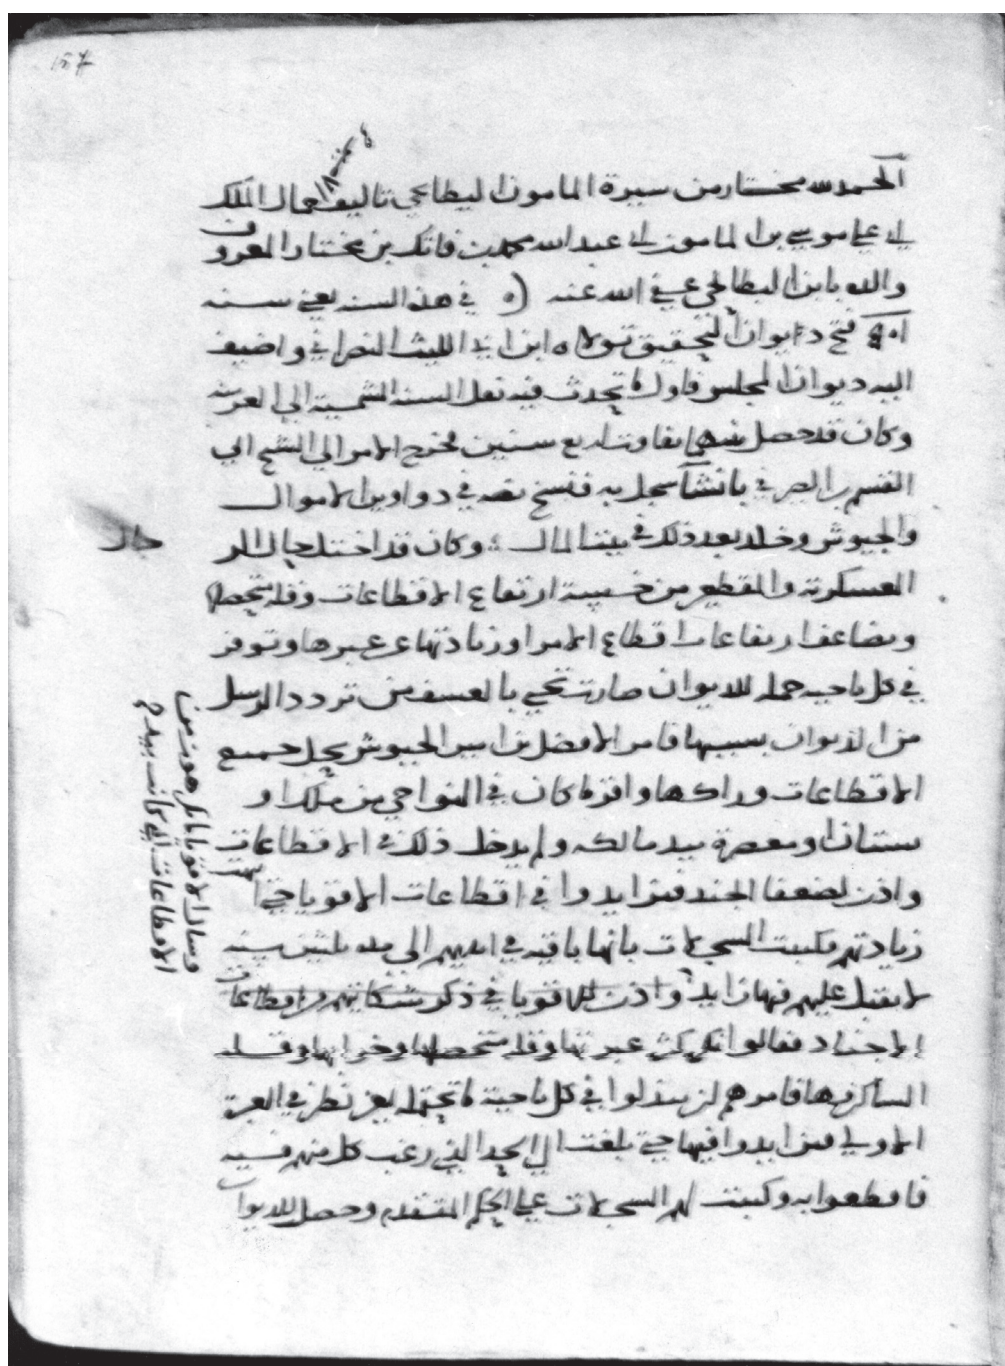 157
الحمد لله مختار من سيرة المامون البطايحي تاليف جمال الملك
ابي علي موسي بن المامون ابي عبد الله محمد بن فاتك بن مختار المعروف
والده بابن البطايحي عفي الله عنه في هذه السنه يعني سنه
فتح ديوان التحقيق تولاه ابن ابي الليث النصراني واضيف
اليه ديوان المجلس فاول ما تحدث فيه نقل السنه الشمسية الي العربيه
وكان قد حصل بينهما تفاوت اربع سنين فخرج الامر الي الشيخ ابي
القسم بن الصيرفي بانشا سجل به فنسخ نصه في دواوين الاموال
والجيوش وخلد بعد ذلك في بيت المال وكان قد اختل حال الر
حال
العسكرية والمقطعين من خسية ارتفاع الاقطاعات وقله متحصل
وتضاعف ارتفاعات اقطاع الامرا وزيادتها عن عبرها وتوفر
في كل ناحيه جمله للديوان صارت تجي بالعسف من تردد الرسل
من الديوان بسببها فامر الافضل بن امير الجيوش بحل جميع
الاقطاعات وراكها واقر ما كان في النواحي من ملك او
بستان او معصرة بيد مالكه ولم يدخل ذلك في الاقطاعات
واذن لضعفا الجند فتزايدوا في اقطاعات الاقويا حتي
زيادتهم فكتبت السجلات بانها باقيه في ايديهم الي مده ثلثين سنه
لا يقبل عليهم فيها زايد واذن للاقويا في ذكر شكاتهم من اقطاعات
الاجناد فقالوا لكثره عبرتها وقله متحصلها وخرابها وقله
الساكن بها فامرهم ان يبذلوا في كل ناحية ما تحتمله بغير نظر في العبرة
الاولي فتزايدوا فيها حتي بلغت الي الحد الذي رغب كل منهم فيه
فاقطعوا به وكتبت لهم السجلات علي الحكم المتقدم وحصل للديوان
وسال الاقويا
الاقطاعات التي كانت بيدهم